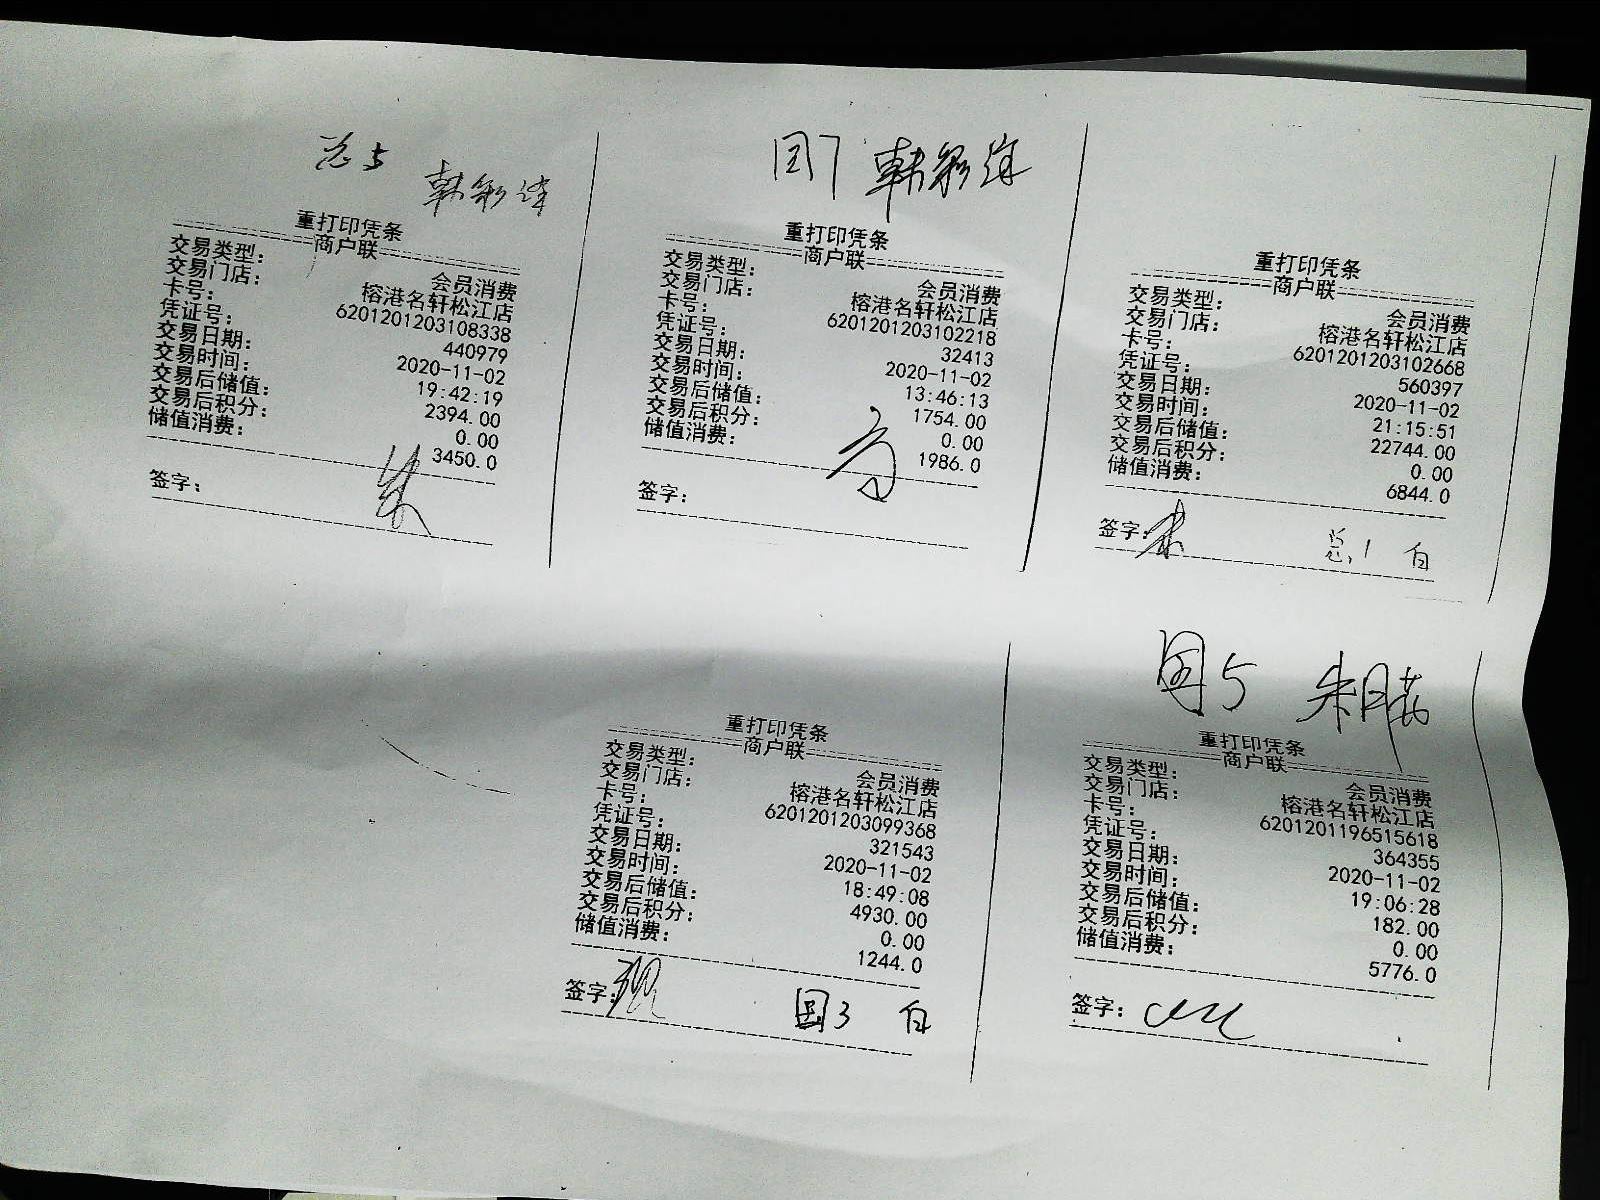 总5
韩彩萍
重打印凭条
商户联
交易类型: 会员消费
交易门店: 榕港名轩松江店
卡号: 6201201203108338
凭证号: 440979
交易日期: 2020-11-02
交易时间: 19:42:19
交易后储值: 2394.00
交易后积分: 0.00
储值消费: 3450.0
签字: 朱
国7
重打印凭条
商户联
交易类型: 会员消费
交易门店: 榕港名轩松江店
卡号: 6201201203102218
凭证号: 32413
交易日期: 2020-11-02
交易时间: 13:46:13
交易后储值: 1754.00
交易后积分: 0.00
储值消费: 1986.0
签字:
重打印凭条
商户联
交易类型: 会员消费
交易门店: 榕港名轩松江店
卡号: 6201201203102668
凭证号: 560397
交易日期: 2020-11-02
交易时间: 21:15:51
交易后储值: 22744.00
交易后积分: 0.00
储值消费: 6844.0
签字: 总1 白
重打印凭条
商户联
交易类型: 会员消费
交易门店: 榕港名轩松江店
卡号: 6201201203099368
凭证号: 321543
交易日期: 2020-11-02
交易时间: 18:49:08
交易后储值: 4930.00
交易后积分: 0.00
储值消费: 1244.0
签字: 国3 白
国5
重打印凭条
商户联
交易类型: 会员消费
交易门店: 榕港名轩松江店
卡号: 6201201196515618
凭证号: 364355
交易日期: 2020-11-02
交易时间: 19:06:28
交易后储值: 182.00
交易后积分: 0.00
储值消费: 5776.0
签字: